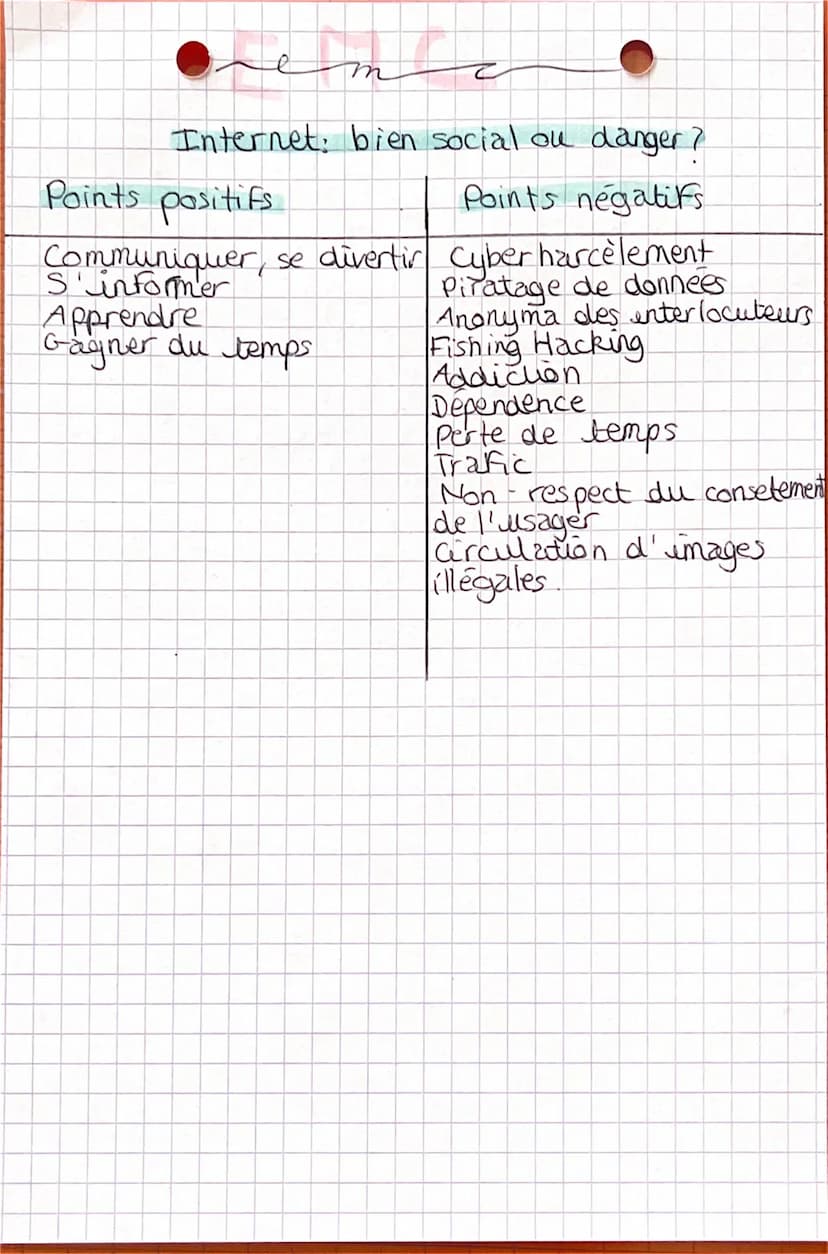 EMC
emc
Internet: bien social ou danger?
Points positifs
Communiquer, se divertir
S'informer
Apprendre
Gagner du temps
Points négatifs
Cyberharcèlement
Piratage de données
Anonyma des interlocuteurs
Fishing Hacking
Addiction
Dépendence
Perte de temps
Trafic
Non-respect du consetement
de l'usager
Circulation d'images
illégales.